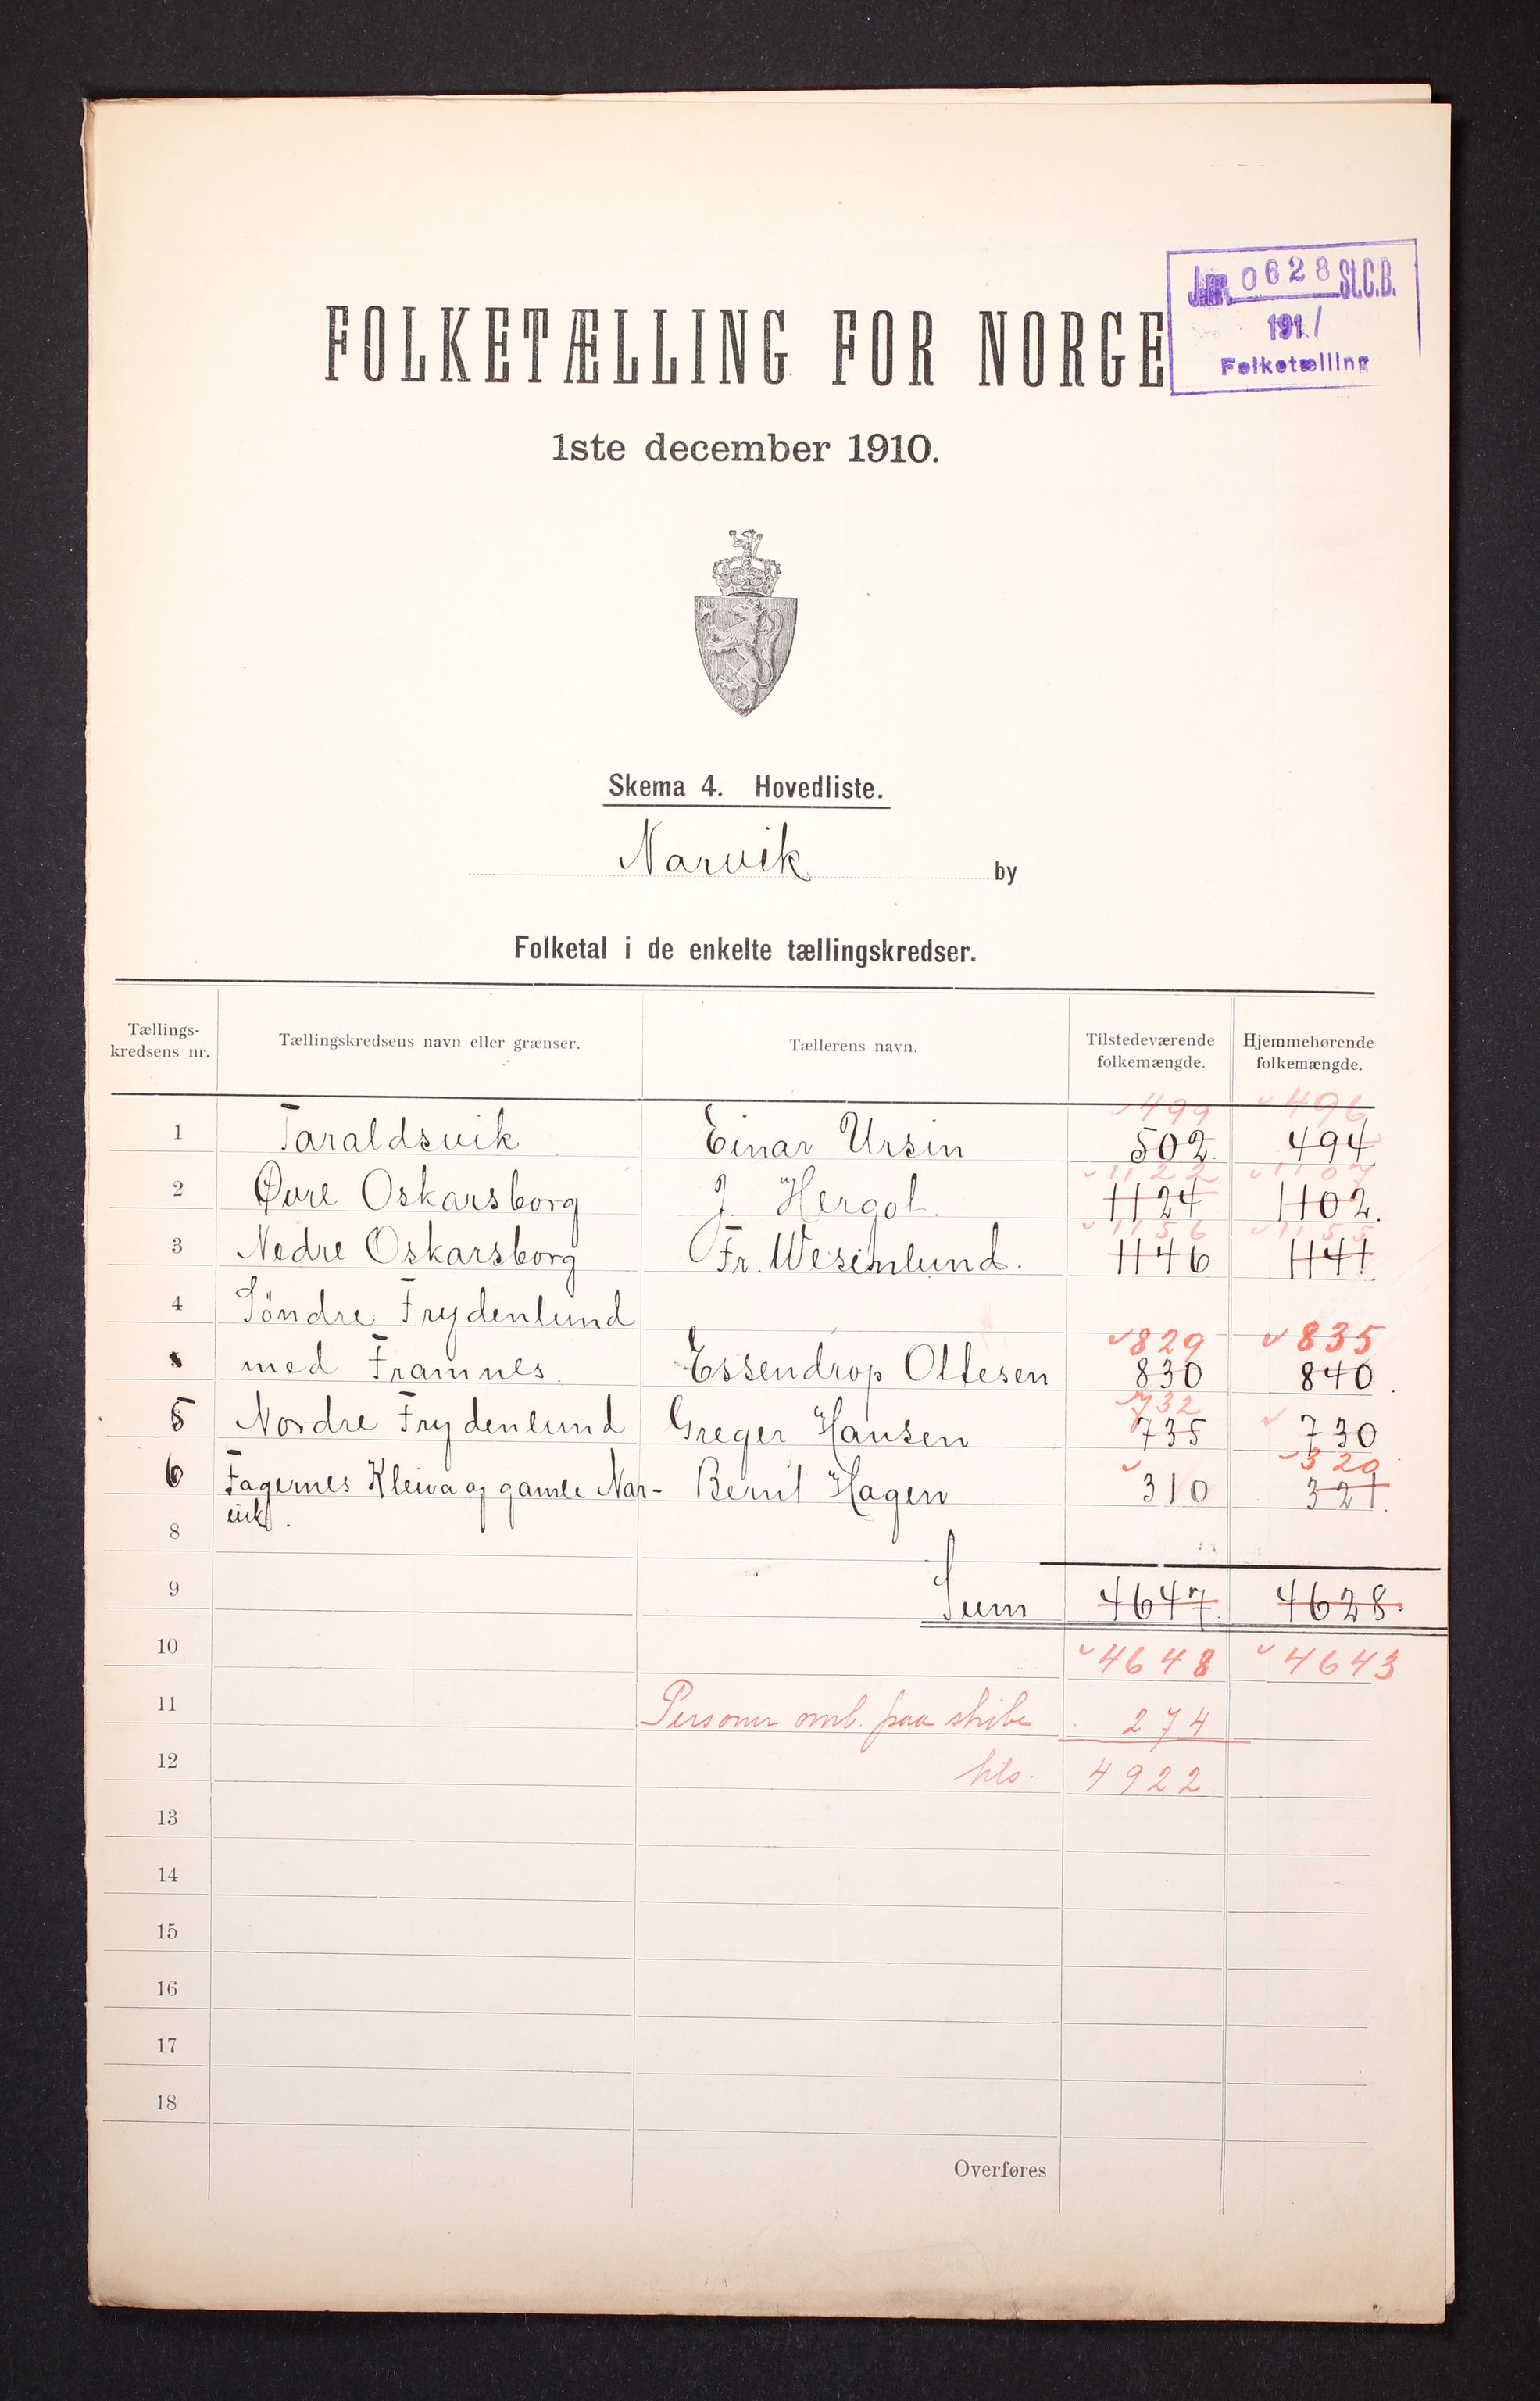 J.nr. 0628 St.C.B.
1911
Folketælling
FOLKETÆLLING FOR NORGE
1ste december 1910.
Skema 4. Hovedliste.
Narvik by
Folketal i de enkelte tællingskredser.
Tællings-kredsens nr. Tællingskredsens navn eller grænser. Tællerens navn. Tilstedeværende folkemængde. Hjemmehørende folkemængde.
499 496
1 Taraldsvik Einar Ursin 502. 494
1122 1107
2 Øvre Oskarsborg J. Hergot. 1124 1102.
1156 1155
3 Nedre Oskarsborg Fr. Wesenlund. 1146 1141
4 Söndre Frydenlund
829 835
med Framnes. Essendrop Ottesen 830 840.
732
5 Nordre Frydenlund Greger Hansen 735 730
320
6 Fagernes Kleiva og gamle Nar- Bernt Hagen 310 321.
vik.
8
9 Sum 4647. 4628.
10 4648 4643
11 Personer omb. paa skibe 274
12 tils. 4922
13
14
15
16
17
18
Overføres